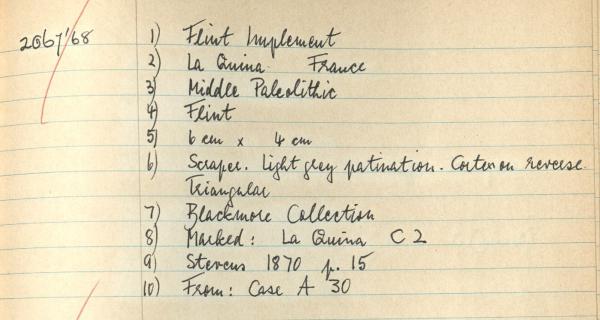 2067/68 1) Flint Implement
2) La Quina France
3) Middle Paleolithic
4) Flint
5) 6 cm x 4 cm
6) Scraper. Light grey patination. Cortex on reverse.
Triangular
7) Blackmore Collection
8) Marked: La Quina C 2
9) Stevens 1870 p. 15
10) From: Case A 30